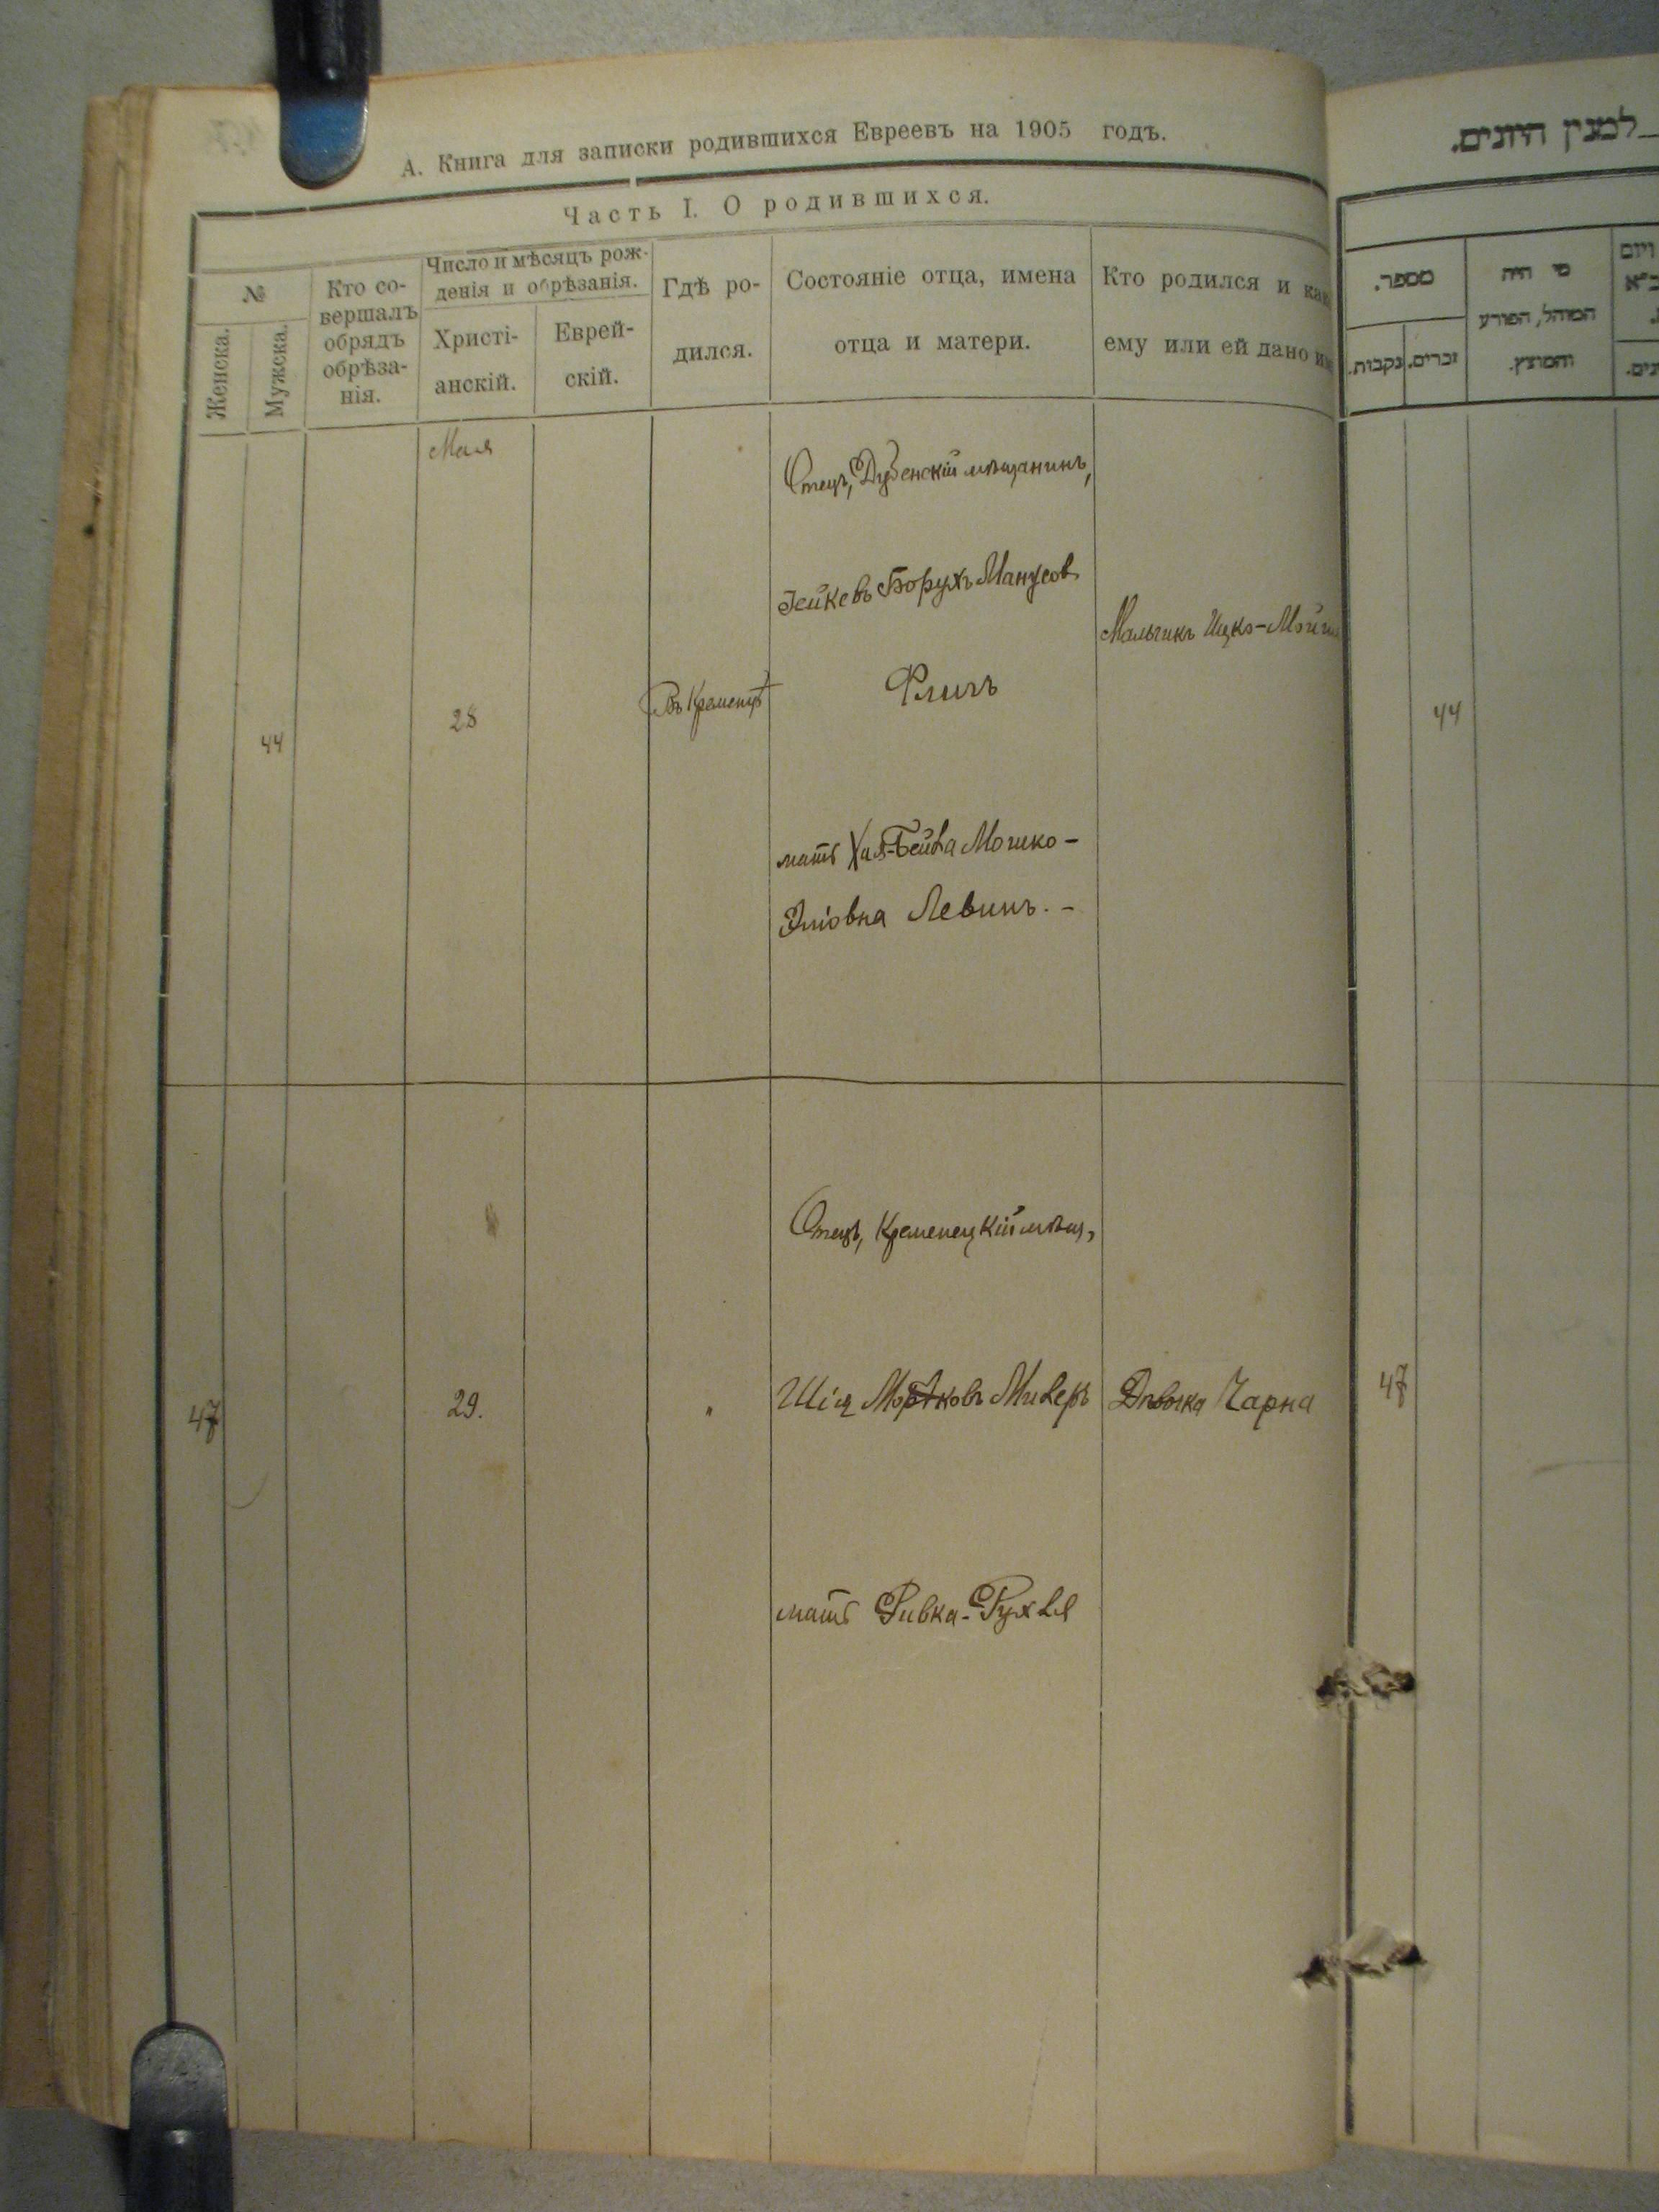 А. Книга для записки родившихся Евреевъ на 1905 годъ.
Часть I. О родившихся.
№
Женска.
Мужска.
Кто со-
вершалъ
обрядъ
обрѣза-
нія.
Число и мѣсяцъ рож-
денія и обрѣзанія.
Христі-
анскій.
Еврей-
скій.
Гдѣ ро-
дился.
Состояніе отца, имена
отца и матери.
Кто родился и как
ему или ей дано им
Мая
44
28
Въ Кременцѣ
Отецъ, Дубенскій мѣщанинъ,
Борухъ Манусов
Флигъ
мать Хая-Бейла Мошко-
Эліовна Левинъ. -
Мальчикъ Ицко-Мойш
47
29.
"
Отецъ, Кременецкій мѣщ,
Шія Мортковъ Милеръ
мать Ривка-Рухля
Дѣвочка Чарна
למנין היונים.
מספר.
זכרים.
נקבות.
מי היה
המוהל, הפורע
והמוצץ.
ויום
44
47